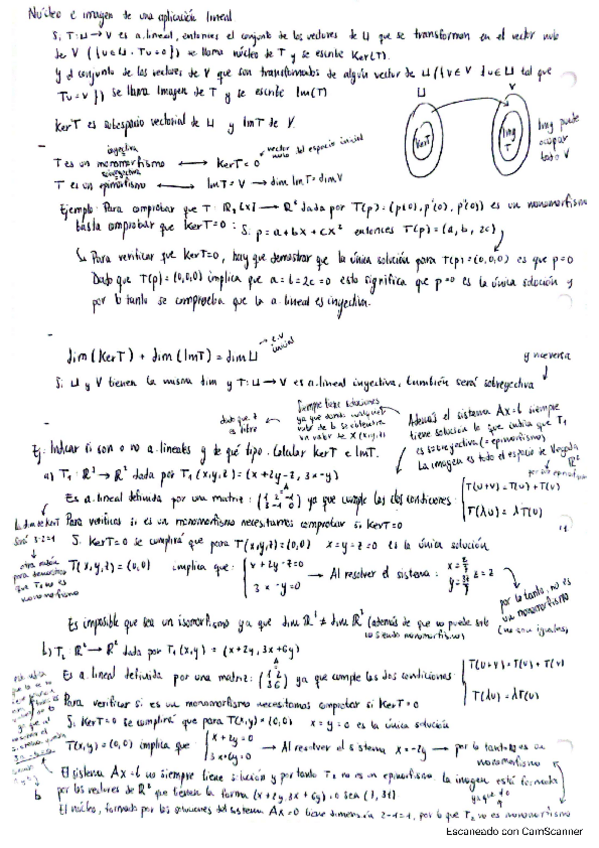 Núcleo e imagen de una aplicación lineal
Si T:U→V es a.lineal, entonces el conjunto de los vectores de U que se transforman en el vector nulo
de V ({u∈U · Tu=0}) se llama núcleo de T y se escribe Ker(T).
Y el conjunto de los vectores de V que son transformados de algún vector de U ({v∈V ∃u∈U tal que
Tu=v}) se llama Imagen de T y se escribe Im(T)
U V
KerT es subespacio vectorial de U y ImT de V.
KerT Img T
Img puede ocupar todo V
inyectiva
T es un monomorfismo ⟷ KerT=0 vector nulo del espacio inicial
T es un epimorfismo ⟷ ImT=V → dim ImT=dimV
Ejemplo: Para comprobar que T: P₂[x] → R³ dada por T(p)=(p(0), p'(0), p''(0)) es un monomorfismo
basta comprobar que KerT=0: Si p=a+bx+cx² entonces T(p)=(a, b, 2c)
Para verificar que KerT=0, hay que demostrar que la única solución para T(p)=(0,0,0) es que p=0
Dado que T(p)=(0,0,0) implica que a=b=2c=0 esto significa que p=0 es la única solución y
por lo tanto se comprueba que la a.lineal es inyectiva.
dim(KerT) + dim(ImT) = dimU → e.v inicial
y viceversa
Si U y V tienen la misma dim y T:U→V es a.lineal inyectiva, también será sobreyectiva
dado que z es libre
Siempre tiene soluciones ya que dando cualquier valor de b se obtendrá un valor de X (x,y,z)
Además el sistema Ax=b siempre
tiene solución lo que indica que T₁
es sobreyectiva (=epimorfismo)
La imagen es todo el espacio de llegada R²
Ej: Indicar si son o no a.lineales y de qué tipo. Calcular KerT e ImT.
a) T₁: R³ → R² dada por T₁(x,y,z) = (x+2y-z, 3x-y)
Es a.lineal definida por una matriz: A (1 2 -1 / 3 -1 0) ya que cumple las dos condiciones: { T(u+v)=T(u)+T(v)
T(λu)=λT(u)
La dim de KerT será 3-2=1
Para verificar si es un monomorfismo necesitamos comprobar si KerT=0
Si KerT=0 se cumplirá que para T(x,y,z)=(0,0) x=y=z=0 es la única solución
otra razón para demostrar que T₁ no es monomorfismo
T(x,y,z)=(0,0) implica que: { x+2y-z=0
3x-y=0 → Al resolver el sistema: x=z/7 y=3z/7 z=z
por lo tanto, no es un monomorfismo
Es imposible que sea un isomorfismo ya que dim R³ ≠ dim R² (además de que no puede serlo no siendo monomorfismo)
b) T₂: R² → R² dada por T₂(x,y) = (x+2y, 3x+6y)
Es a.lineal definida por una matriz: A (1 2 / 3 6) ya que cumple las dos condiciones { T(u+v)=T(u)+T(v)
T(λu)=λT(u)
Para verificar si es un monomorfismo necesitamos comprobar si KerT=0
Si KerT=0 se cumplirá que para T(x,y)=(0,0) x=y=0 es la única solución
T(x,y)=(0,0) implica que { x+2y=0
3x+6y=0 → Al resolver el sistema x=-2y → por lo tanto no es un monomorfismo
El sistema Ax=b no siempre tiene solución y por tanto T₂ no es un epimorfismo. La imagen está formada
por los vectores de R² que tienen la forma (x+2y, 3x+6y) o sea (λ, 3λ)
El núcleo, formado por las soluciones del sistema Ax=0 tiene dimensión 2-1=1, por lo que T₂ no es monomorfismo
Escaneado con CamScanner